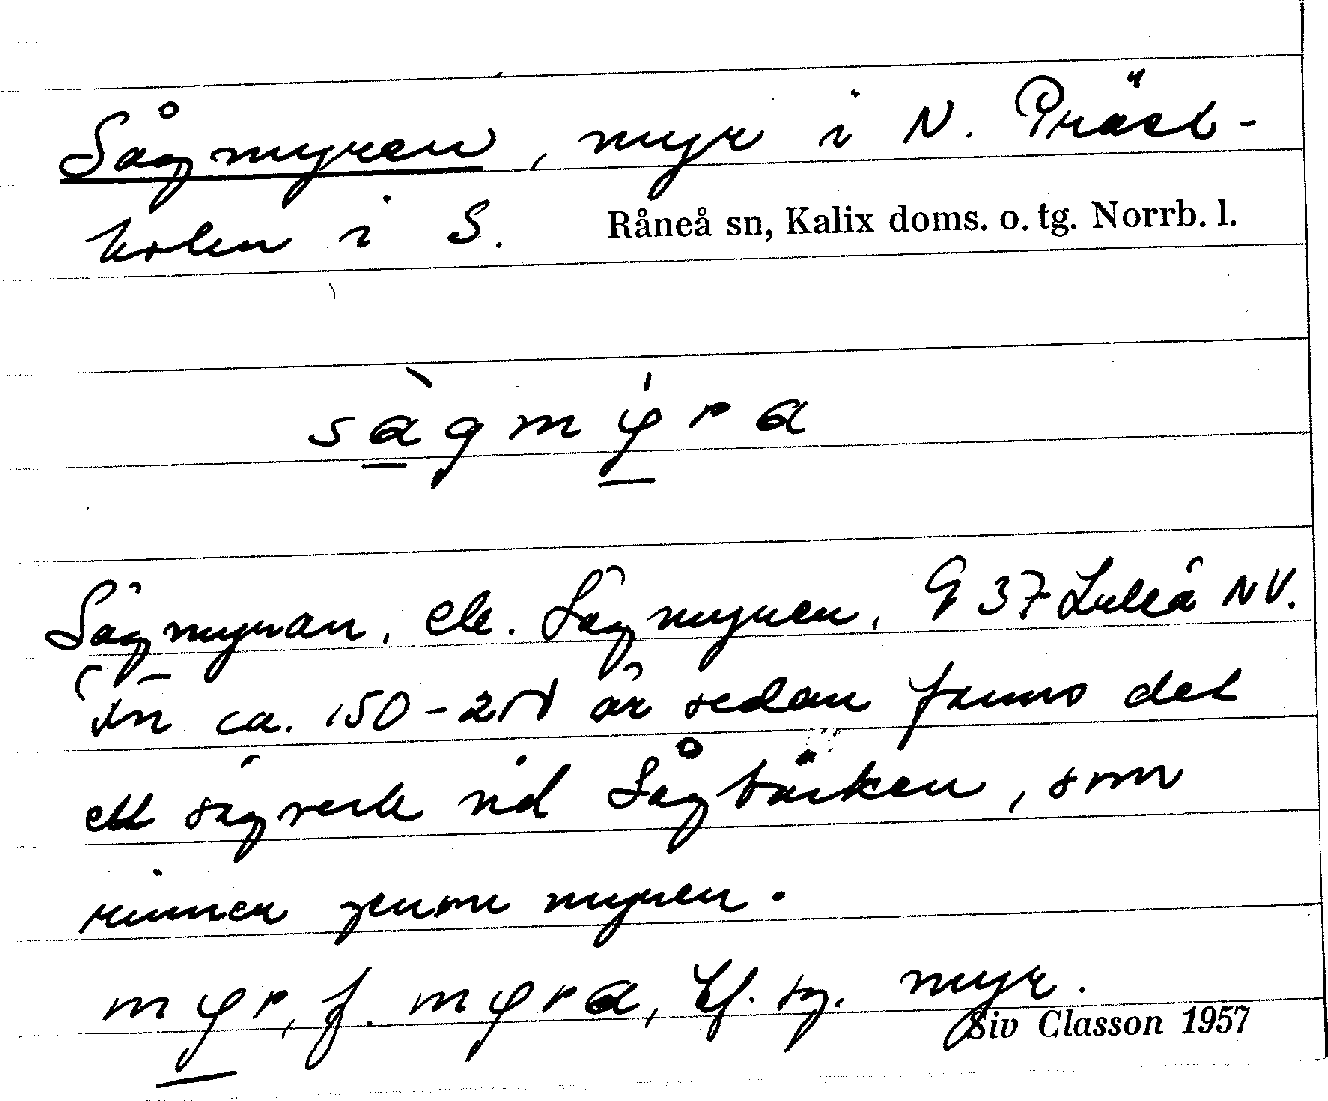 Sågmyren, myr i N. Präst-
holm i S. Råneå sn, Kalix doms. o. tg. Norrb. l.
sàgmýra
Sågmyran, ek. Sågmyren, 9 37 Luleå NV.
För ca. 150-200 år sedan fanns det
ett sågverk vid Sågbäcken, som
rinner genom myren.
myr, f. myra, bf. sg. myr.
Siv Classon 1957